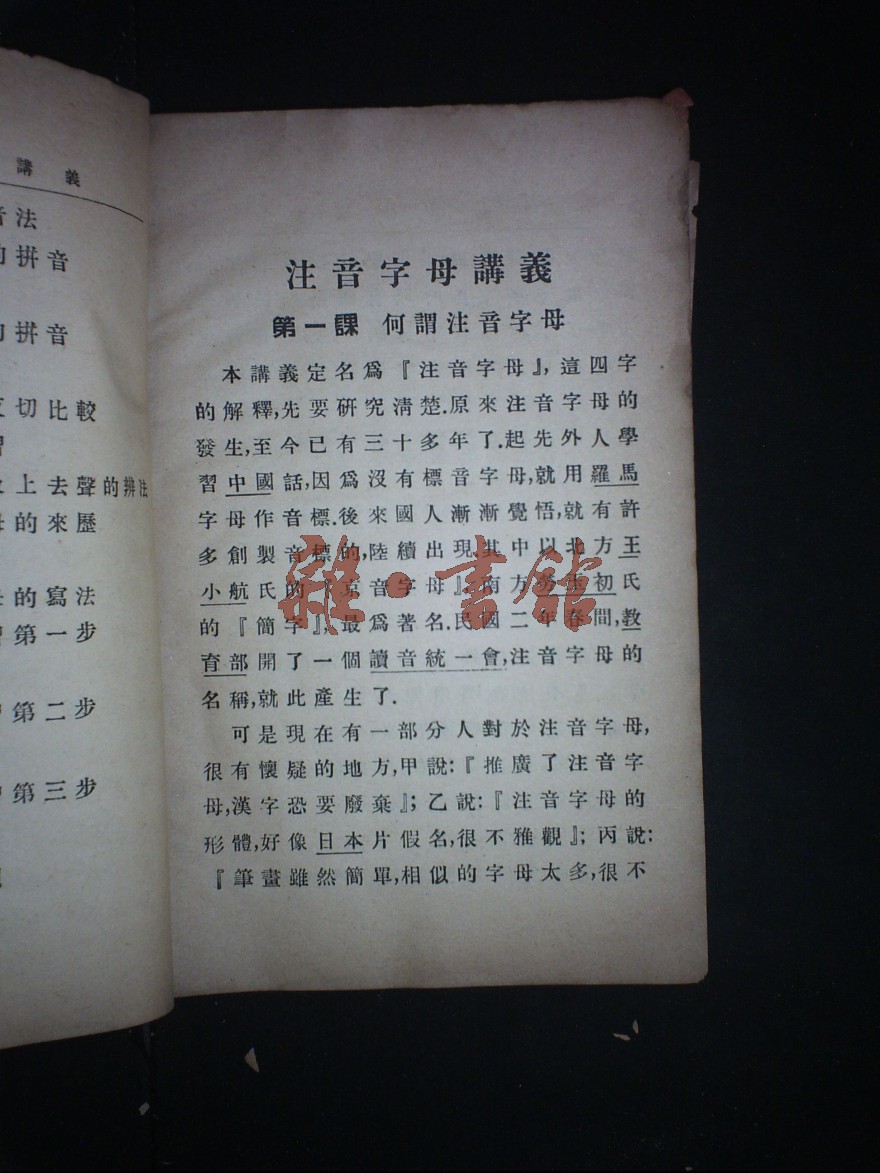 講義
音法
的拼音
的拼音
反切比較
上去聲的辨法
母的來歷
的寫法
第一步
第二步
第三步
注音字母講義
第一課 何謂注音字母
本講義定名爲『注音字母』,這四字
的解釋,先要研究淸楚.原來注音字母的
發生,至今已有三十多年了.起先外人學
習中國話,因爲沒有標音字母,就用羅馬
字母作音標.後來國人漸漸覺悟,就有許
多創製音標的,陸續出現.其中以北方王
小航氏的『京音字母』,南方勞玉初氏
的『簡字』,最爲著名.民國二年春間,教
育部開了一個讀音統一會,注音字母的
名稱,就此產生了.
可是現在有一部分人對於注音字母,
很有懷疑的地方,甲說:『推廣了注音字
母,漢字恐要廢棄』;乙說:『注音字母的
形體,好像日本片假名,很不雅觀』;丙說:
『筆畫雖然簡單,相似的字母太多,很不
雜·書館